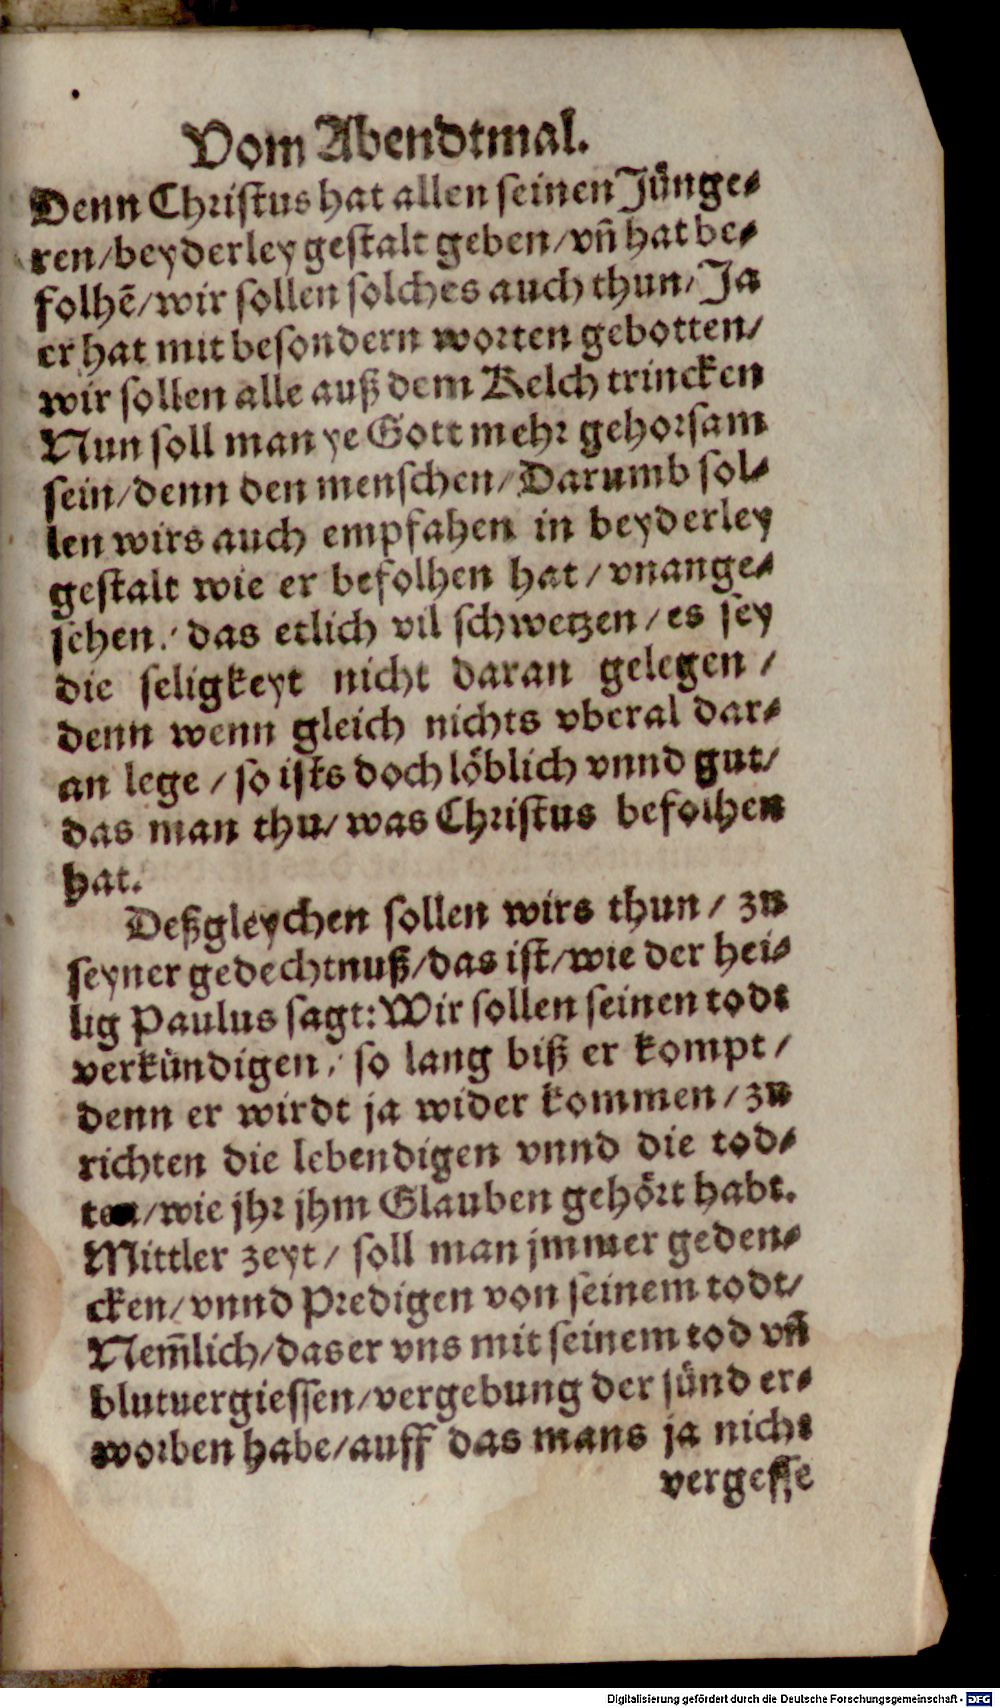 Vom Abendtmal.
Denn Christus hat allen seinen Jünge⸗
ren/beyderley gestalt geben/vn̄ hat be⸗
folhē/wir sollen solches auch thun/Ja
er hat mit besondern worten gebotten/
wir sollen alle auß dem Kelch trincken
Nun soll man ye Gott mehr gehorsam
sein/denn den menschen/Darumb sol⸗
len wirs auch empfahen in beyderley
gestalt wie er befolhen hat/vnange⸗
sehen/das etlich vil schwetzen/es sey
die seligkeyt nicht daran gelegen/
denn wenn gleich nichts vberal dar⸗
an lege/so ists doch löblich vnnd gut/
das man thu/was Christus befolhen
hat.
Deßgleychen sollen wirs thun/zu
seyner gedechtnuß/das ist/wie der hei⸗
lig Paulus sagt:Wir sollen seinen todt
verkündigen/so lang biß er kompt/
denn er wirdt ja wider kommen/zu
richten die lebendigen vnnd die tod⸗
ten/wie jhr jhm Glauben gehört habt.
Mittler zeyt/soll man jmmer geden⸗
cken/vnnd Predigen von seinem todt/
Nem̄lich/das er vns mit seinem tod vn̄
blutuergiessen/vergebung der sünd er⸗
worben habe/auff das mans ja nicht
vergesse
Digitalisierung gefördert durch die Deutsche Forschungsgemeinschaft - DFG